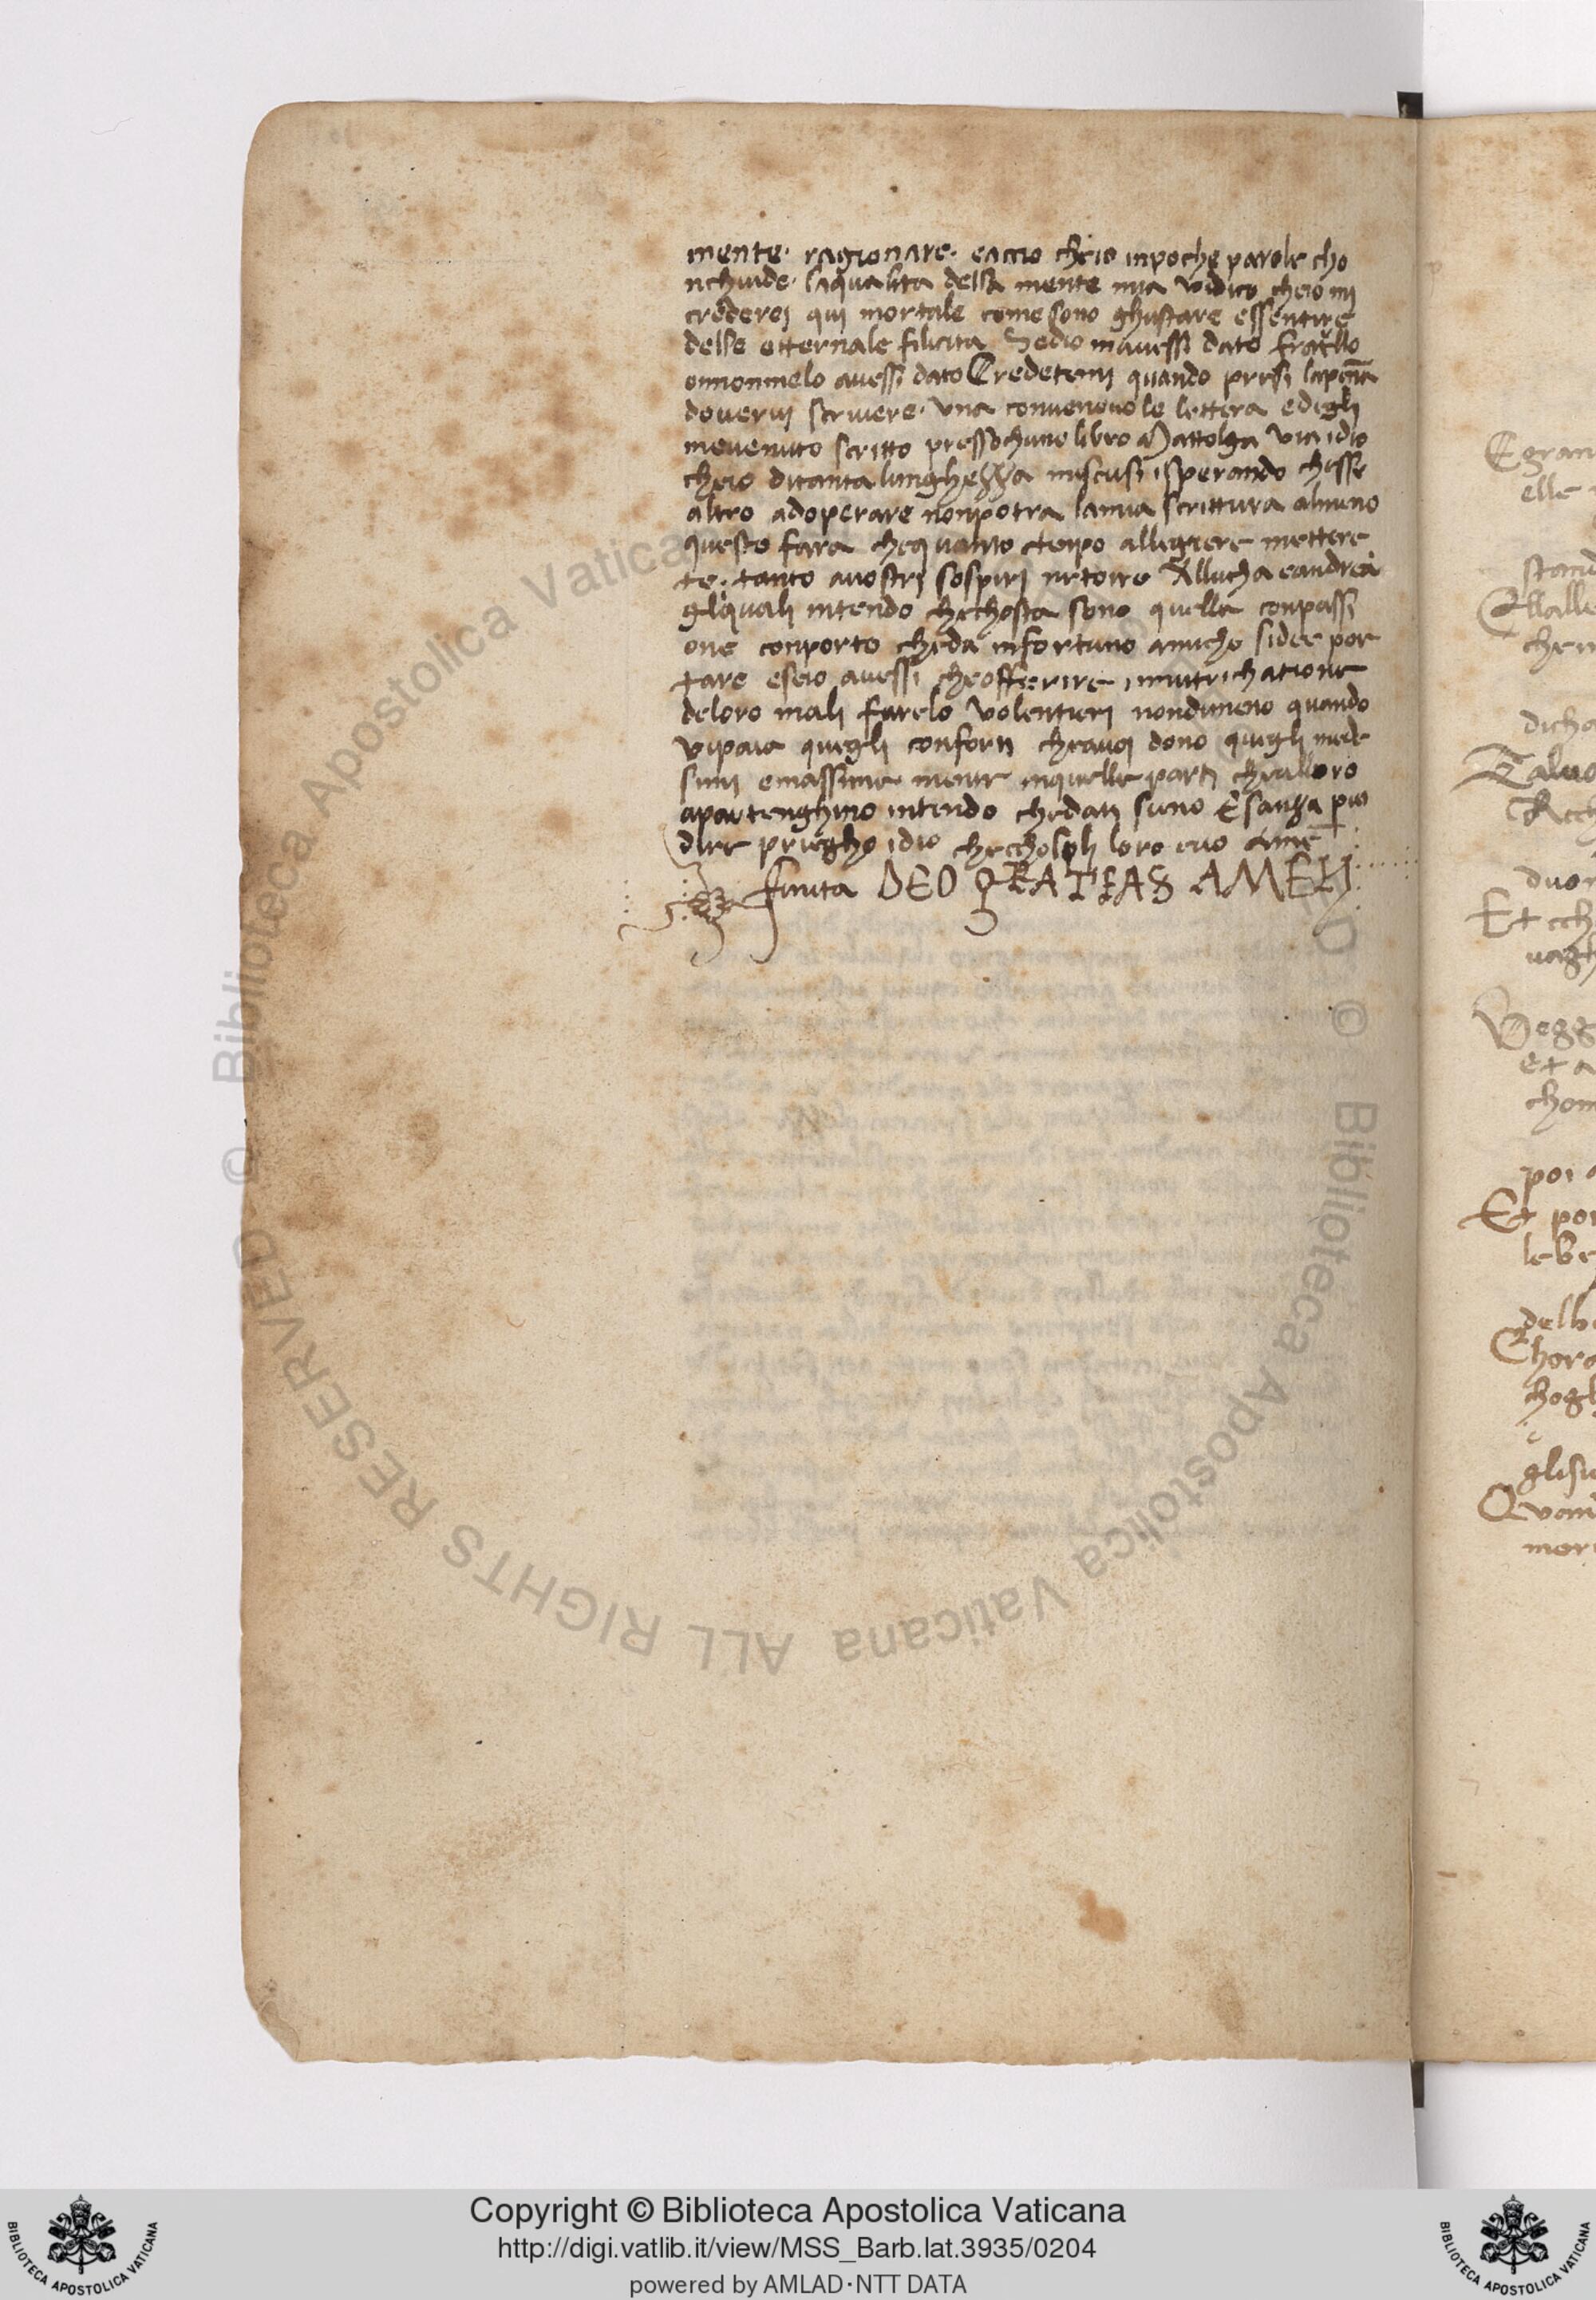 mente· ragionare· eaccio cheio inpoche parole cho
nchiude· laqualita della mente mia vidico cheio mi
crederei qui mortale come sono ghustare essentire
delle etternale filicita Sedio mavessi dato fratello
onnonmelo avessi dato Credetemi quando presi lapena
dovervi scrivere· Una convenevole lettera edegli
mevenuto scritto pressochuno libro Mattolga via idio
cheio ditanta lunghezza miscusi isperando chesse
altro adoperare nonpotra lamia scrittura almeno
questo fara chequanto tenpo alleggiere mettere
te· tanto avostri sospiri netorre Allucha eandrea
gl quali intendo chechosta sono quella conpassi
one comporto cheda infortuno amicho sidee por
tare eseio avessi cheofferire inmitichatione
deloro mali farelo volentieri nondimeno quando
vipaia quegli conforti cheavoi dono quegli mede
simi emassime mente inquelle parti chealloro
apartenghino intendo chedati sieno E sanza piu
dire priegho idio checholsoli loro evo Ame
finita DEO GRATIAS AMEN
Egran
elle
stand
Ellalle
chem
dicho
Talvo
Rech
duo
Et cch
vagh
Vegg
et a
chom
poi a
Et por
lebe
delb
Chora
chogl
glisu
Quand
mor
© Biblioteca Apostolica Vaticana ALL RIGHTS RESERVED
Copyright © Biblioteca Apostolica Vaticana
http://digi.vatlib.it/view/MSS_Barb.lat.3935/0204
powered by AMLAD·NTT DATA
BIBLIOTECA APOSTOLICA VATICANA
BIBLIOTECA APOSTOLICA VATICANA